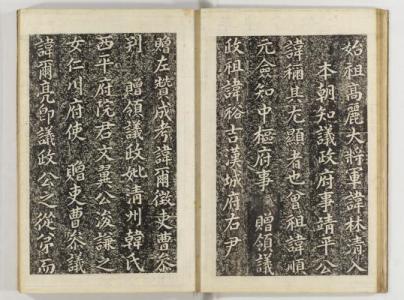 始祖高麗大將軍諱林淸入
本朝知議政府事靖平公
諱稱其尤顯者也曾祖諱順
元僉知中樞府事 贈領議
政祖諱裕吉漢城府右尹
贈左贊成考諱爾徵吏曹叅
判 贈領議政妣淸州韓氏
西平府院君文翼公浚謙之
女仁川府使 贈吏曹叅議
諱爾亮卽議政公之從而